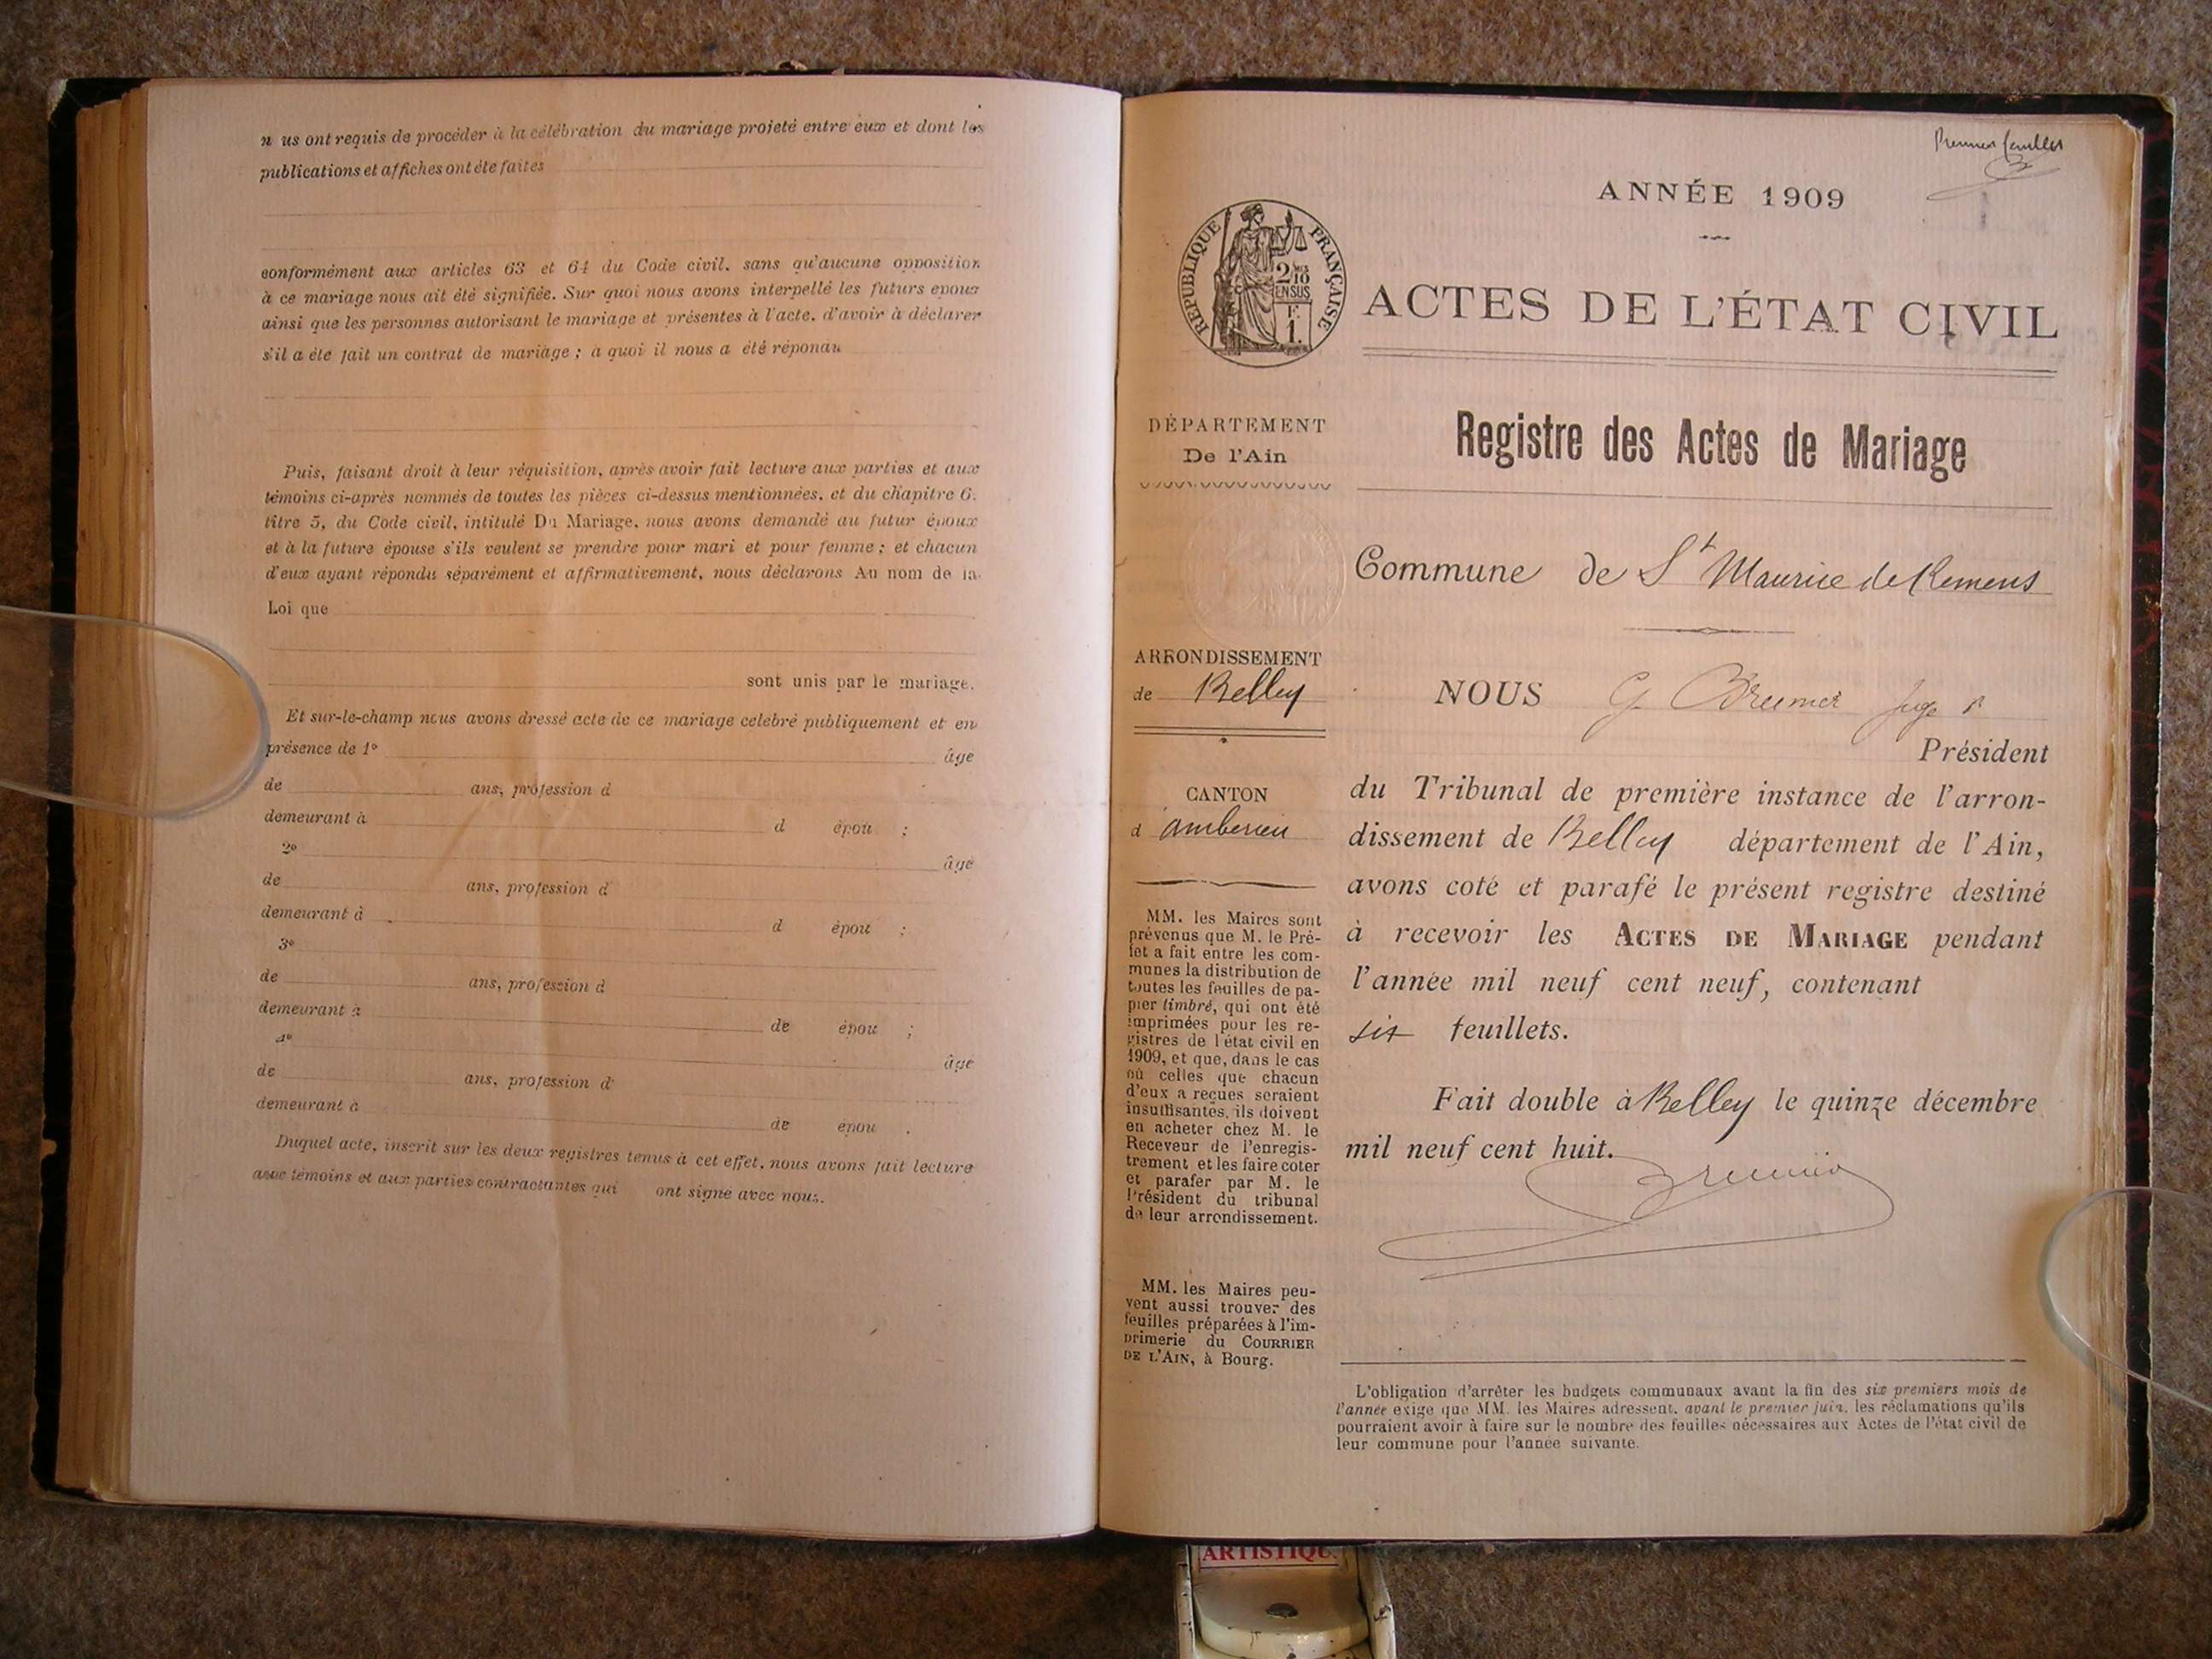 n us ont requis de procéder à la célébration du mariage projeté entre eux et dont les
publications et affiches ont été faites
conformément aux articles 63 et 64 du Code civil, sans qu'aucune opposition
à ce mariage nous ait été signifiée. Sur quoi nous avons interpellé les futurs epoux
ainsi que les personnes autorisant le mariage et présentes à l'acte, d'avoir à déclarer
s'il a été fait un contrat de mariage ; à quoi il nous a été répondu
Puis, faisant droit à leur réquisition, après avoir fait lecture aux parties et aux
témoins ci-après nommés de toutes les pièces ci-dessus mentionnées, et du chapitre 6,
titre 5, du Code civil, intitulé Du Mariage, nous avons demandé au futur époux
et à la future épouse s'ils veulent se prendre pour mari et pour femme ; et chacun
d'eux ayant répondu séparément et affirmativement, nous déclarons Au nom de la
Loi que
sont unis par le mariage.
Et sur-le-champ nous avons dressé acte de ce mariage celébré publiquement et en
présence de 1° âge
de ans, profession d
demeurant à d épou ;
2° âge
de ans, profession d
demeurant à d épou ;
3°
de ans, profession d
demeurant à de épou ;
4° âge
de ans, profession d
demeurant à de epou .
Duquel acte, inscrit sur les deux registres tenus à cet effet, nous avons fait lecture
aux témoins et aux parties contractantes qui ont signé avec nous.
Premier feuillet
ANNÉE 1909
RÉPUBLIQUE FRANÇAISE
2 10
EN SUS
F.
1.
ACTES DE L'ÉTAT CIVIL
DÉPARTEMENT
De l'Ain
Registre des Actes de Mariage
Commune de St Maurice de Remens
ARRONDISSEMENT
de Belley
CANTON
d'ambérieu
MM. les Maires sont
prévenus que M. le Pré-
fet a fait entre les com-
munes la distribution de
toutes les feuilles de pa-
pier timbré, qui ont été
imprimées pour les re-
gistres de l'état civil en
1909, et que, dans le cas
où celles que chacun
d'eux a reçues seraient
insuffisantes, ils doivent
en acheter chez M. le
Receveur de l'enregis-
trement et les faire coter
et parafer par M. le
Président du tribunal
de leur arrondissement.
MM. les Maires peu-
vent aussi trouver des
feuilles préparées à l'im-
primerie du COURRIER
DE L'AIN, à Bourg.
NOUS G. Juge
Président
du Tribunal de première instance de l'arron-
dissement de Belley département de l'Ain,
avons coté et parafé le présent registre destiné
à recevoir les ACTES DE MARIAGE pendant
l'année mil neuf cent neuf, contenant
six feuillets.
Fait double à Belley le quinze décembre
mil neuf cent huit.
L'obligation d'arrêter les budgets communaux avant la fin des six premiers mois de
l'année exige que MM. les Maires adressent, avant le premier juin, les réclamations qu'ils
pourraient avoir à faire sur le nombre des feuilles nécessaires aux Actes de l'état civil de
leur commune pour l'année suivante.
ARTISTIQU